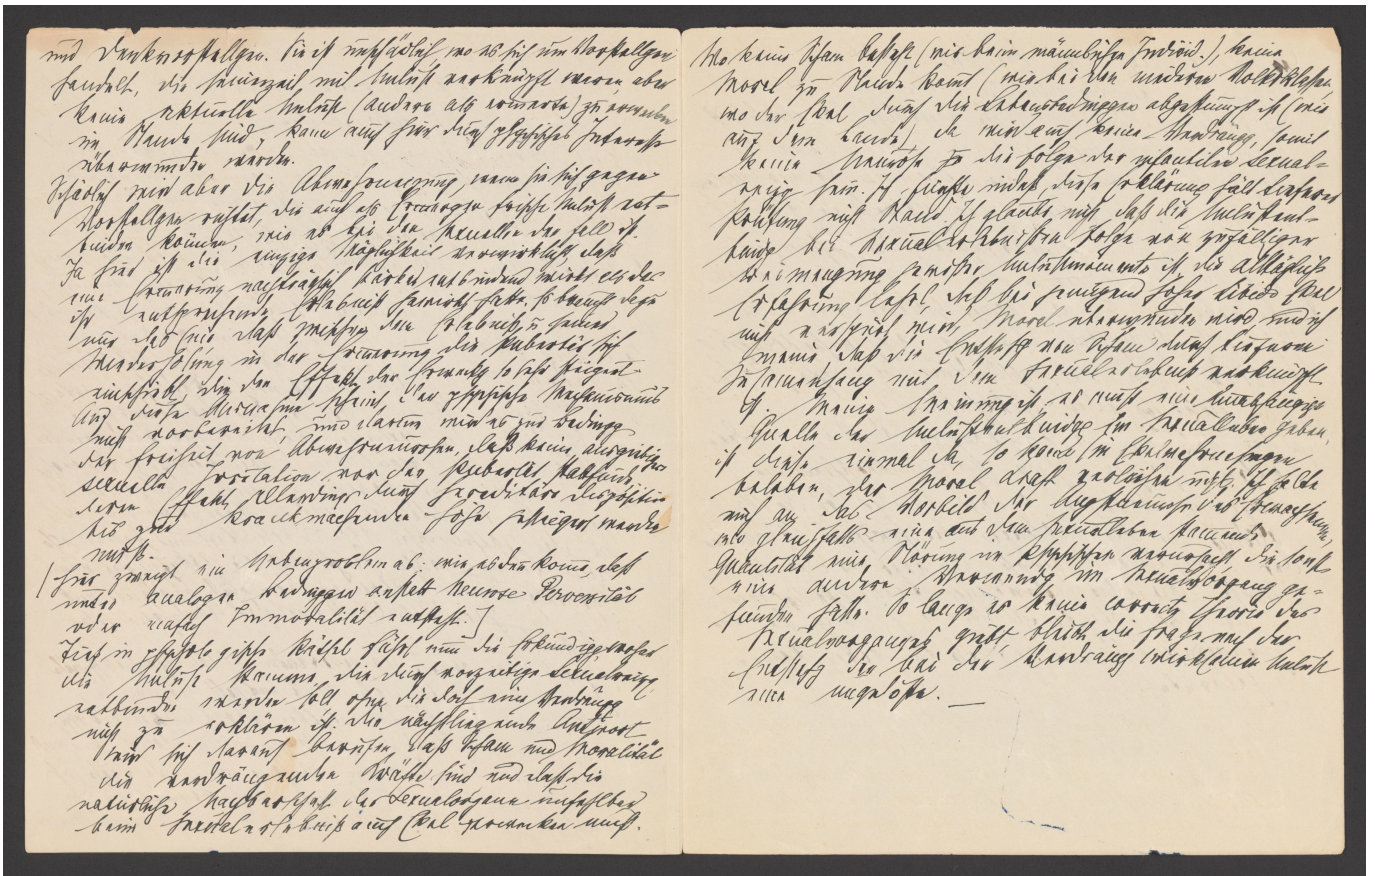 und Denkvorstellgen. Sie ist unschädlich wo es sich um Vorstellgen
handelt, die seinerzeit mit Unlust verknüpft waren, aber
keine aktuelle Unlust (andere als erinnerte) zu erwerben
im Stande sind, kann auch hier durch psychisches Interesse
überwunden werden.
Schädlich wird aber die Abwehrneigung, wenn sie sich gegen
Vorstellgen richtet, die auch als Erinnergen frische Unlust ent-
binden können, wie es bei den sexuellen der Fall ist.
Ja hier ist die einzige Möglichkeit verwirklicht, daß
eine Erinnerung nachträglich stärker entbindend wirkt als das
ihr entsprechende Erlebniß gewirkt hatte. Es braucht dazu
nur das eine daß zwischen dem Erlebniß u seiner
Wiederholung in der Erinnerung die Pubertät sich
einschiebt, die den Effekt der Erweckg so sehr steigert.
Auf diese Ausnahme scheint der psychische Mechanismus
nicht vorbereitet, und darum wird es zur Bedingg
der Freiheit von Abwehrneurosen, daß keine ausgiebigere
sexuelle Irritation vor der Pubertät stattfinde,
deren Effekt allerdings durch hereditäre Disposition
bis zur krankmachenden Höhe gesteigert werden
muß.
[Hier zweigt ein Nebenproblem ab: wie es denn komt, daß
unter analogen Bedinggen anstatt Neurose Perversität
oder einfach Immoralität entsteht.]
Tief in psychologische Räthsel führt nun die Erkundigg woher
die Unlust stamme, die durch vorzeitige Sexualreizg
entbunden werden soll ohne die doch eine Verdrängg
nicht zu erklären ist. Die nächstliegende Antwort
wird sich darauf berufen, daß Scham und Moralität
die verdrängenden Kräfte sind und daß die
natürliche Nachbarschaft der Sexualorgane unfehlbar
beim Sexualerlebniß auch Ekel erwecken muß.
Wo keine Scham besteht (wie beim männlichen Individ.), keine
Moral zu Stande komt (wie bei den niederen Volksklassen),
wo der Ekel durch die Lebensbedinggen abgestumpft ist (wie
auf dem Lande), da wird auch keine Verdrängg, somit
keine Neurose zu die Folge der infantilen Sexual-
reizg sein. Ich fürchte indeß, diese Erklärung hält tieferer
Prüfung nicht Stand. Ich glaube nicht, daß die Unlustent-
bindg bei Sexualerlebnissen Folge von zufälliger
Beimengung gewißer Unlustmomente ist. Die alltägliche
Erfahrung lehrt, daß bei genügend hoher Libido Ekel
nicht verspürt wird, Moral überwunden wird und ich
meine, daß die Entstehg von Scham durch tieferen
Zusamenhang mit dem Sexualerlebniß verknüpft
ist. Meine Meinung ist, es muß eine unabhängige
Quelle der Unlustentbindgg im Sexualleben geben,
ist diese einmal da, so kann sie Ekelwahrnehmgen
beleben, der Moral Kraft verleihen usf. Ich halte
mich an das Vorbild der Angstneurose des Erwachsenen,
wo gleichfalls eine aus dem Sexualleben stamende
Quantität eine Störung im Psychischen verursacht, die sonst
eine andere Verwendg im Sexualvorgang ge-
funden hätte. So lange es keine correcte Theorie des
Sexualvorganges giebt, bleibt die Frage nach der
Entstehg der bei der Verdrängg wirksamen Unlust
eine ungelöste. —